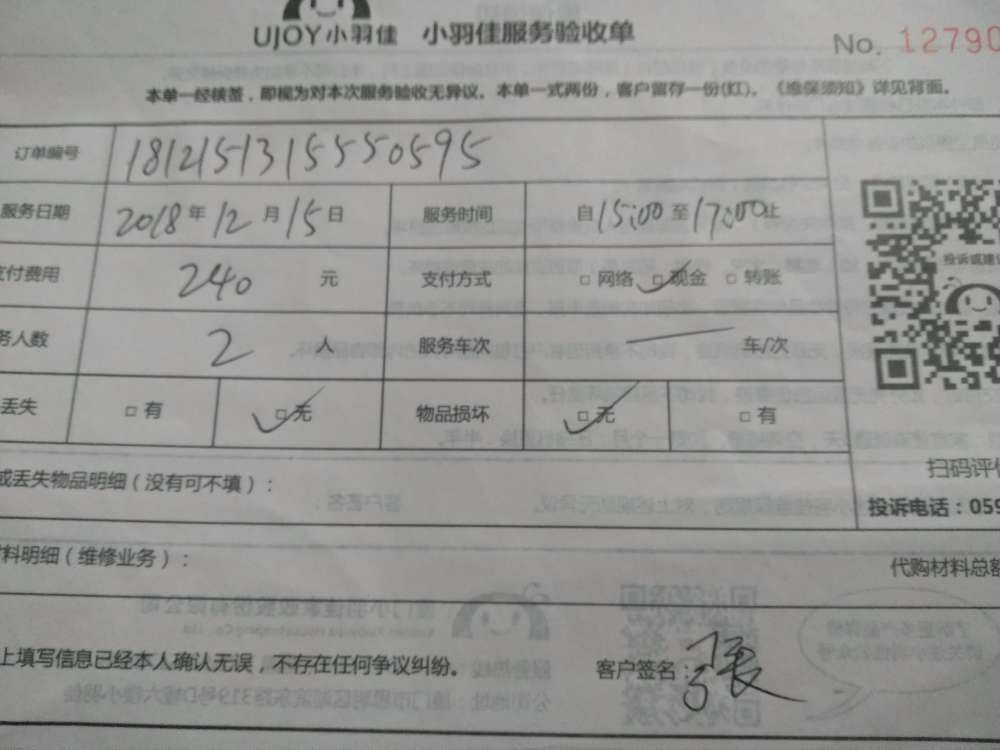 UJOY小羽佳 小羽佳服务验收单
No. 12790
本单一经核签，即视为对本次服务验收无异议。本单一式两份，客户留存一份(红)。《维保须知》详见背面。
订单编号 181215131555550595
服务日期 2018年12月15日 服务时间 自15:00至17:00止
支付费用 240 元 支付方式 □网络 □现金 □转账
务人数 2 人 服务车次 — 车/次
丢失 □有 □无 物品损坏 □无 □有
投诉或建议
或丢失物品明细（没有可不填）：
扫码评价
投诉电话：059
材料明细（维修业务）：
代购材料总额
上填写信息已经本人确认无误，不存在任何争议纠纷。 客户签名：张